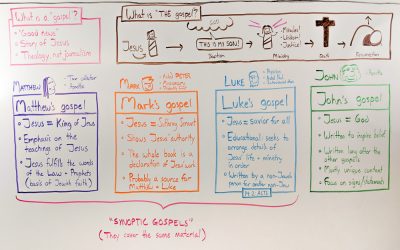 What is a "gospel"?
- "Good news"
- Story of Jesus
- Theology, not journalism
What is "THE gospel?"
Jesus
THIS IS MY SON!
Baptism
Miracles!
Wisdom!
Justice!
Ministry
Death
Resurrection
MATTHEW
- Tax collector
Matthew's gospel
- Jesus = King of Jews
- Emphasis on the teachings of Jesus
- Jesus fulfills the words of the Law + Prophets (basis of Jewish faith)
MARK
PETER
Mark's gospel
- Jesus =
- Shows Jesus' authority
- The whole book is a declaration of Jesus' work
- Probably a source for Matthew + Luke
LUKE
Luke's gospel
- Jesus = Savior for all
- Educational seeks to arrange details of Jesus' life + ministry in order
- Written by a non-Jewish person for another non-Jew
Pt. 2: ACTS
JOHN
John's gospel
- Jesus = God
- Written to inspire belief
- Written long after the other gospels
- Mostly unique content
- Focus on signs/statements
"SYNOPTIC GOSPELS"
(They cover the same material)